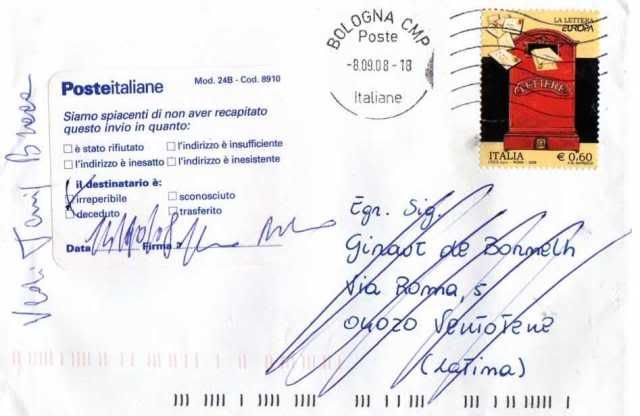 Posteitaliane Mod. 24B - Cod. 8910
Siamo spiacenti di non aver recapitato
questo invio in quanto:
è stato rifiutato l'indirizzo è insufficiente
l'indirizzo è inesatto l'indirizzo è inesistente
il destinatario è:
irreperibile sconosciuto
deceduto trasferito
Data Firma
BOLOGNA CMP
Poste
-8.09.08-18
Italiane
LA LETTERA
EUROPA
LETTERE
ITALIA € 0.60
Egr. Sig.
Ginaot de Bormelh
Via Roma, 5
04020 Ventotene
(Latina)